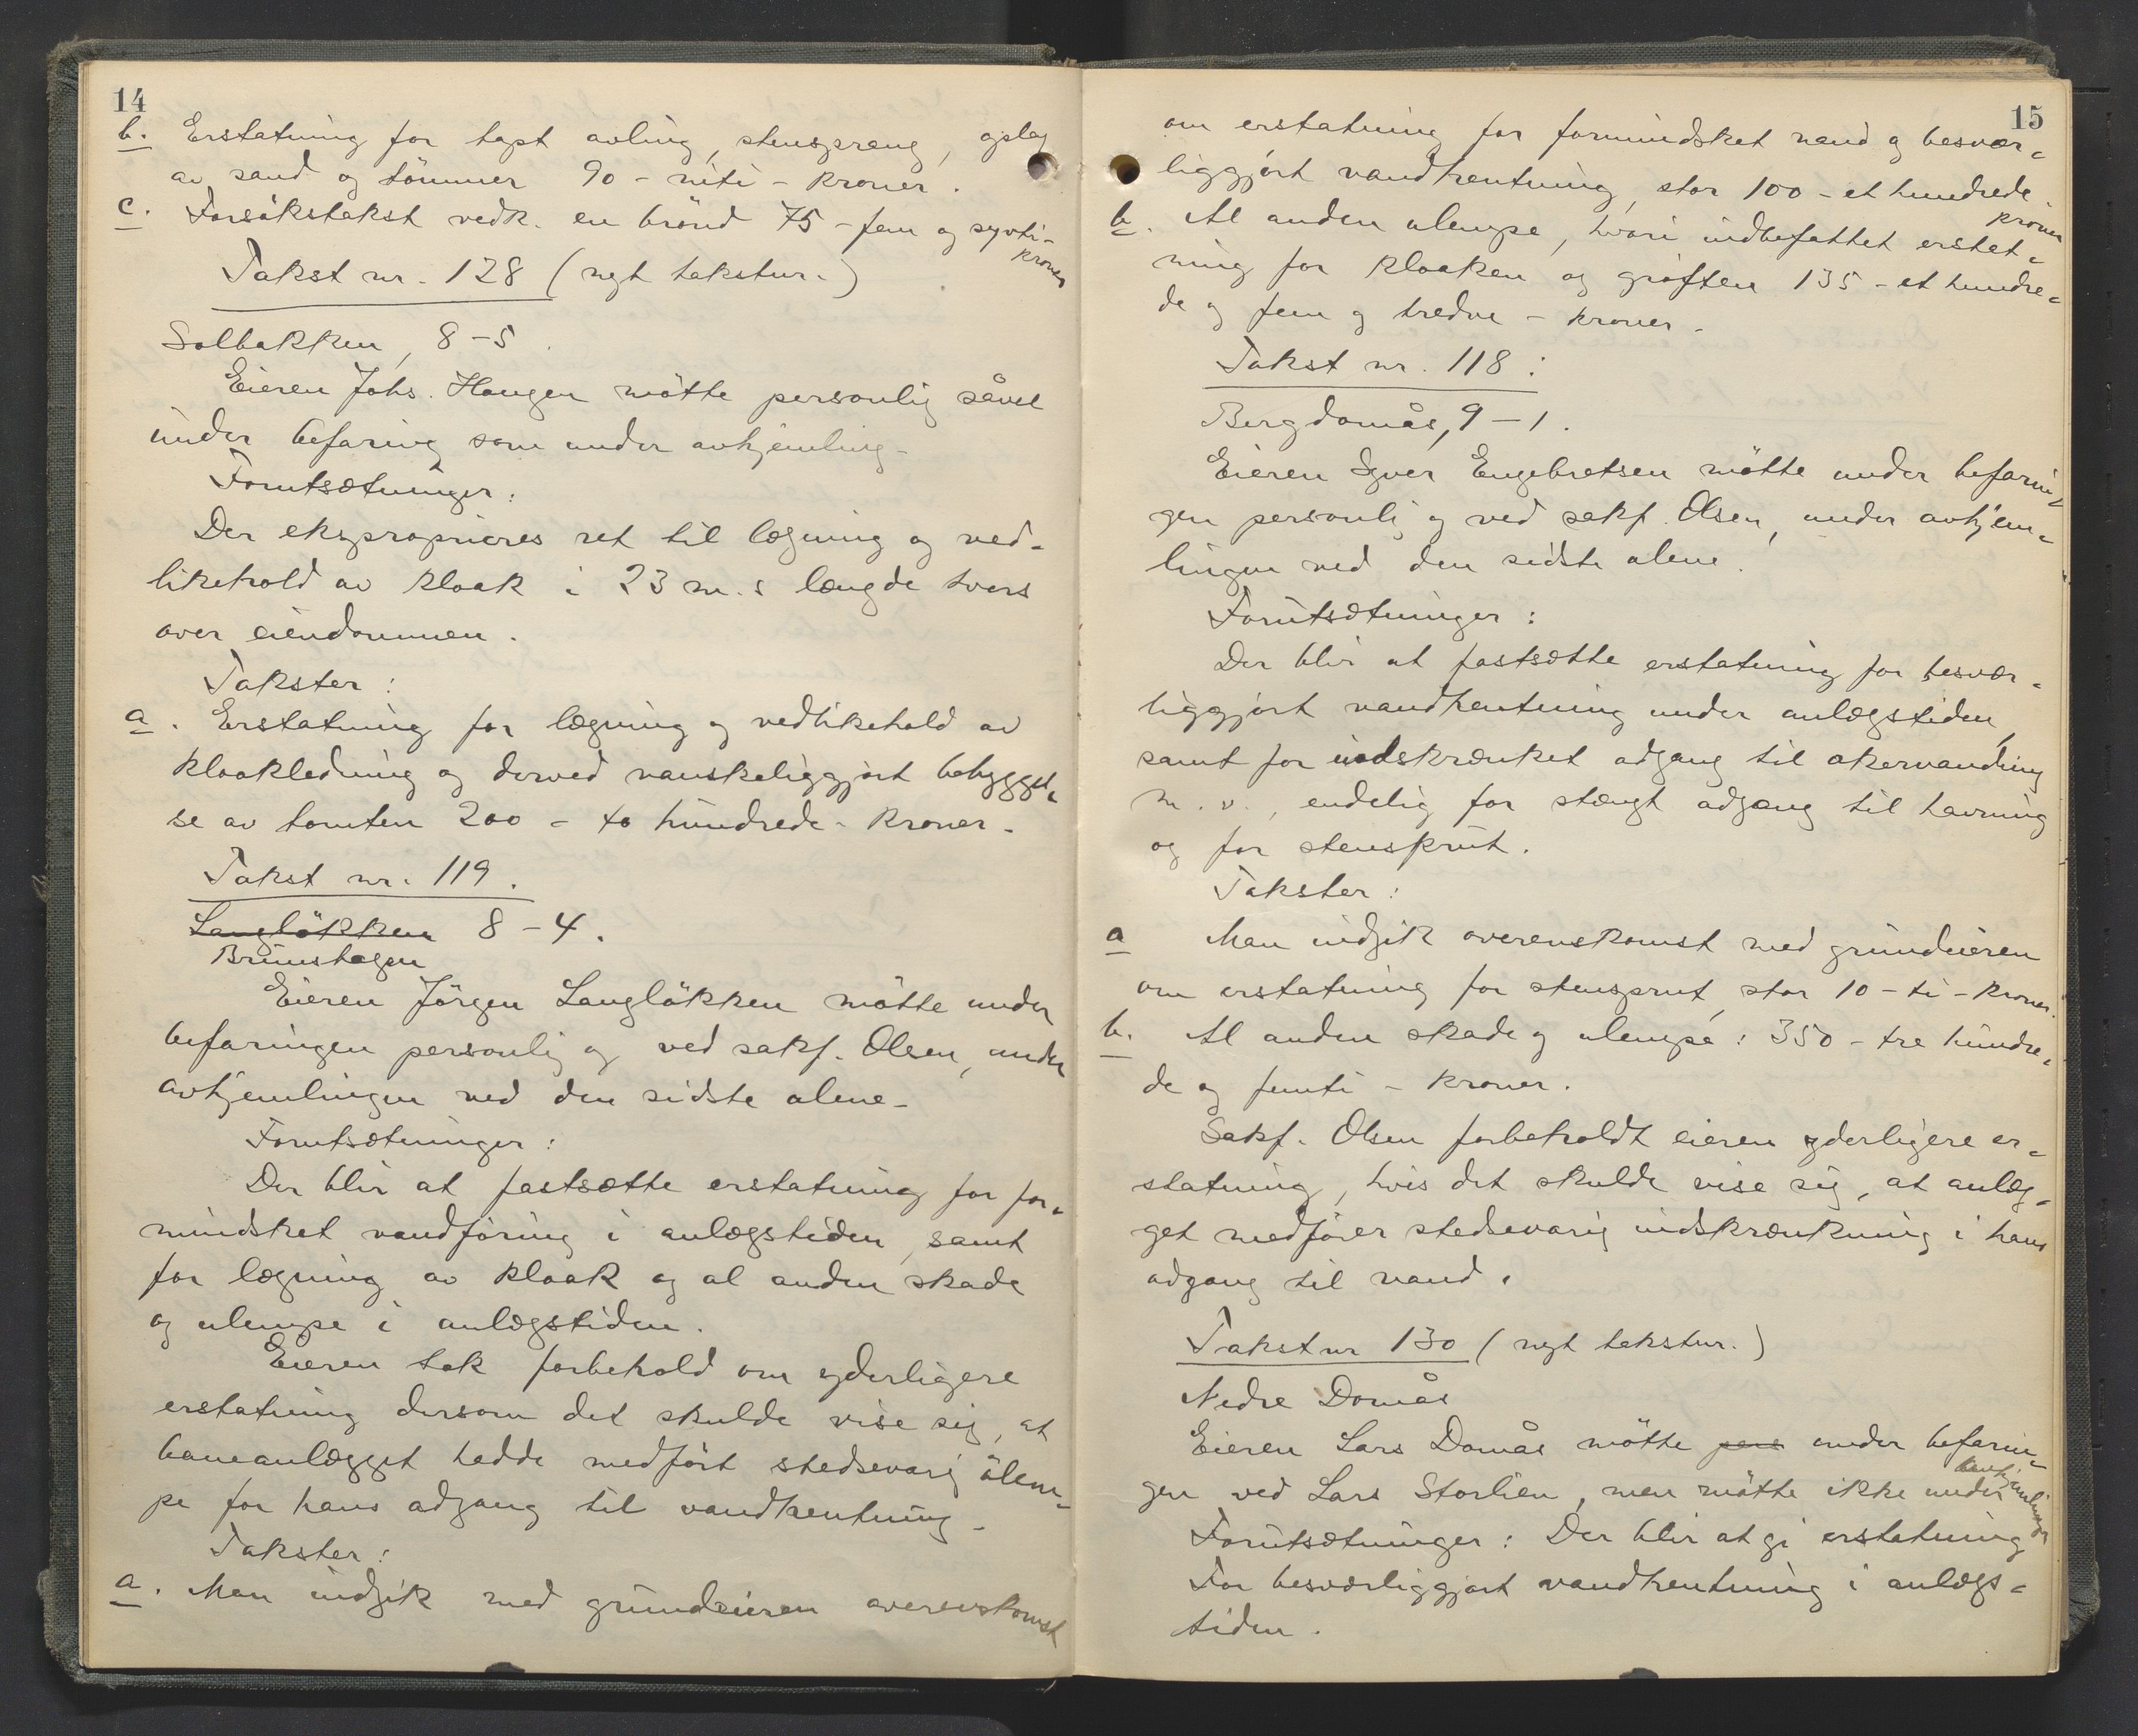 14
b. Erstatning for tapt avling, stenspræng, oplag
av sand og tömmer 90 - niti - kroner.
c. Forsökstakst vedk. en brönd 75 - fem og sytti -
kroner
Takst nr. 128 (nyt takstnr.)
Solbakken, 8-5.
Eieren Johs. Haugen mötte personlig såvel
under befaring som under avhjemling.
Forutsætninger:
Der eksproprieres ret til lægning og ved-
likehold av kloak i 23 m.s længde tvers
over eiendommen.
Takster:
a. Erstatning for lægning og vedlikehold av
kloakledning og derved vanskeliggjort bebyggel-
se av tomten 200 - to hundrede - kroner.
Takst nr. 119.
Langlökken 8-4.
Brunshagen
Eieren Jörgen Langlökken mötte under
befaringen personlig og ved sakf. Olsen, under
avhjemlingen ved den sidste alene.
Forutsætninger:
Der blir at fastsætte erstatning for for-
mindsket vandföring i anlægstiden, samt
for lægning av kloak og al anden skade
og ulempe i anlægstiden.
Eieren tok forbehold om yderligere
erstatning dersom det skulde vise sig, at
baneanlægget hadde medfört stedsevarig ulem-
pe for hans adgang til vandhentning.
Takster:
a. Man indgik med grundeieren overenskomst
15
om erstatning for formindsket vand og besvær-
liggjort vandhentning, stor 100 - et hundrede -
kroner
b. Al anden ulempe, hvori indbefattet erstat-
ning for kloaken og gröften 135 - et hundre-
de og fem og tredve - kroner.
Takst nr. 118:
Bergdomås, 9-1.
Eieren Iver Engebretsen mötte under befarin-
gen personlig og ved sakf. Olsen, under avhjem-
lingen ved den sidste alene.
Forutsætninger:
Der blir at fastsætte erstatning for besvær-
liggjort vandhentning under anlægstiden,
samt for indskrænket adgang til akervanding
m.v., endelig for stængt adgang til havning
og for stensprut.
Takster:
a Man indgik overenskomst med grundeieren
om erstatning for stensprut, stor 10 - ti - kroner.
b. Al anden skade og ulempe: 350 - tre hundre-
de og femti - kroner.
Sakf. Olsen forbeholdt eieren yderligere er-
statning, hvis det skulde vise sig, at anlæg-
get medförer stedsevarig indskrænkning i hans
adgang til vand.
Takst nr 130 (nyt takstnr.)
Nedre Domås
Eieren Lars Domås mötte pers under befarin-
gen ved Lars Storlien, men mötte ikke under
avhjemlingen
Forutsætninger: Der blir at gi erstatning
for besværliggjort vandhentning i anlægs-
tiden.